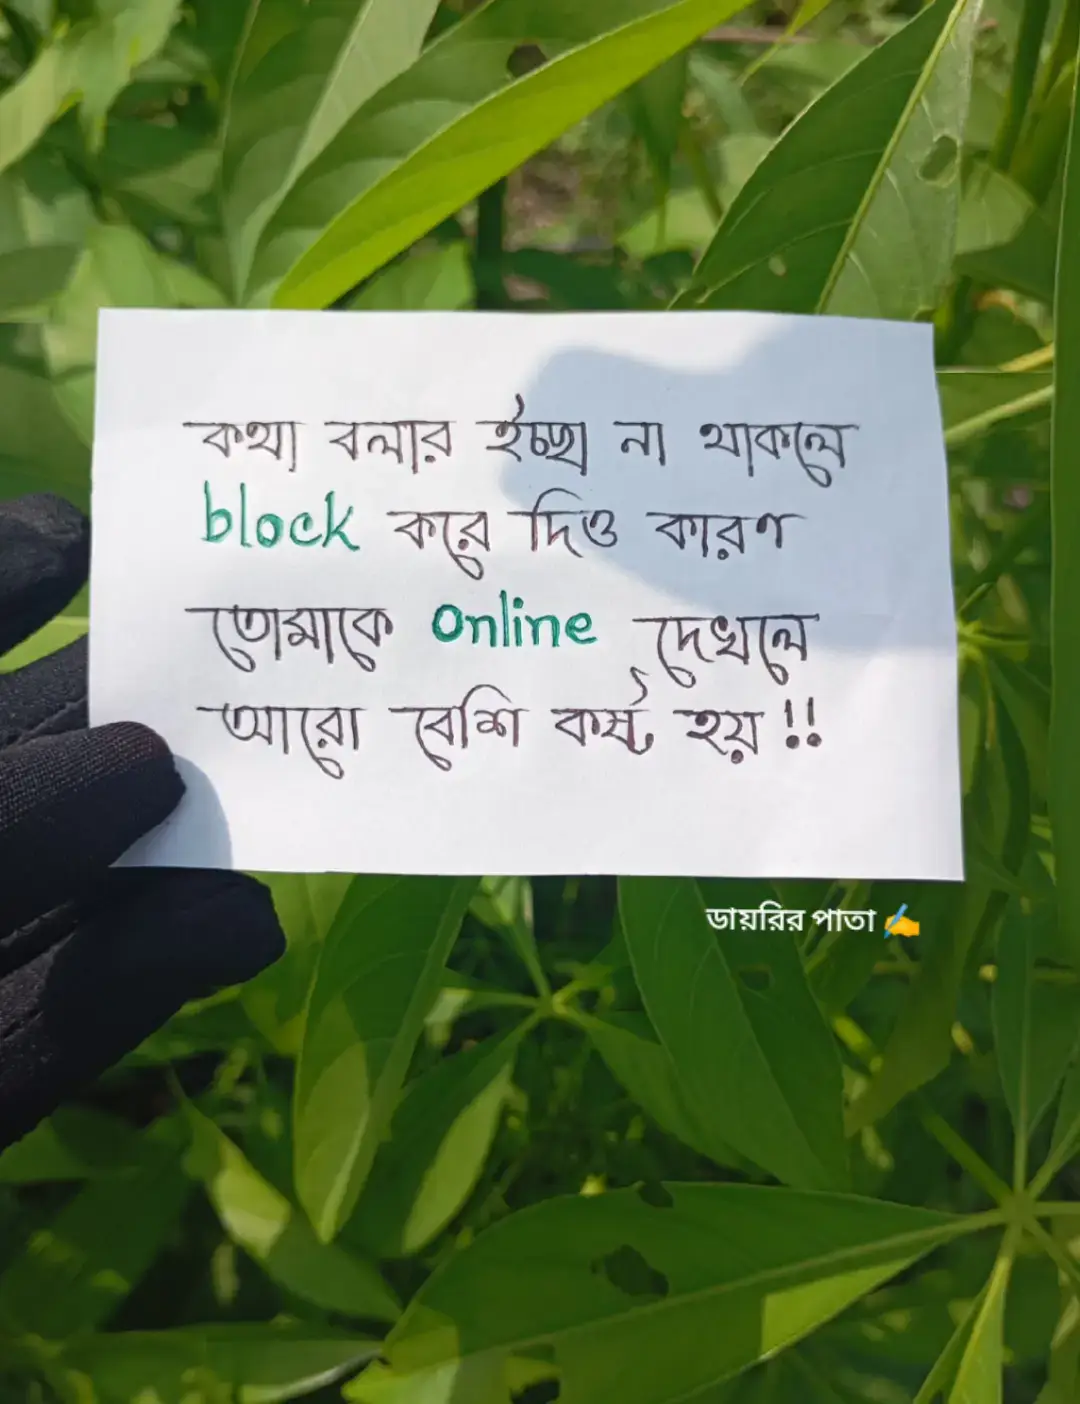 কথা বলার ইচ্ছা না থাকলে
block করে দিও কারণ
তোমাকে Online দেখলে
আরো বেশি কষ্ট হয় !!
ডায়রির পাতা ✍️